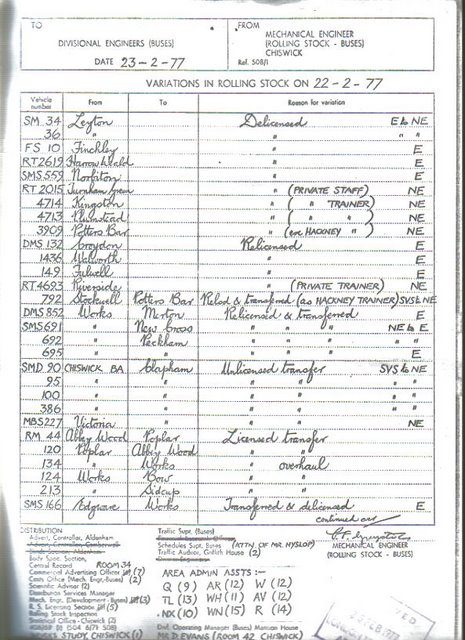 TO
DIVISIONAL ENGINEERS (BUSES)
DATE 23-2-77
FROM
MECHANICAL ENGINEER
(ROLLING STOCK - BUSES)
CHISWICK
Ref. 508/1
VARIATIONS IN ROLLING STOCK ON 22-2-77
Vehicle number From To Reason for variation
SM 34 Leyton Delicensed E & NE
36 " " " "
FS 10 Finchley " E
RT2619 Harrow Weald " E
SMS 559 Norbiton " E
RT 2015 Turnham Green " (PRIVATE STAFF) NE
4714 Kingston " ( " TRAINER) NE
4713 Plumstead " ( " " ) NE
3909 Potters Bar " (ex HACKNEY " ) NE
DMS 132 Croydon Relicensed E
1436 Walworth " E
149 Fulwell " E
RT4693 Riverside " (PRIVATE TRAINER) NE
792 Stockwell Potters Bar Relcd & transferred (as HACKNEY TRAINER) SVS & NE
DMS 852 Works Merton Relicensed & transferred E
SMS691 " New Cross " " " NE & E
692 " Peckham " " " " "
695 " " " " " E
SMD 90 CHISWICK BA Clapham Unlicensed transfer SVS & NE
95 " " " " " "
100 " " " " " "
386 " " " " " "
MBS227 Victoria " " " NE
RM 44 Abbey Wood Poplar Licensed transfer
120 Poplar Abbey Wood " "
134 " Works " overhaul
124 Works Bow " "
213 " Sidcup " "
SMS 166 Edgware Works Transferred & delicensed E
continued over
MECHANICAL ENGINEER
(ROLLING STOCK - BUSES)
DISTRIBUTION
Advert. Controller, Aldenham
Body Spec. Section,
Central Record ROOM 34
Commercial Advertising Officer (7)
Costs Office (Mech. Engr.-Buses) (2)
Scientific Advisor (2)
Distribution Services Manager
Mech. Engr. (Development - Buses) (3)
R. S. Licensing Section (5)
Rolling Stock Inspection
Statistical Office - Chiswick (2)
WORKS STUDY, CHISWICK (1)
Traffic Supt. (Buses)
Schedules Supt. Buses (ATTN. OF MR. HYSLOP)
Traffic Auditor, Griffith House (2)
AREA ADMIN ASSTS :-
Q (12) AR (12) W (12)
TL (13) WH (11) AV (12)
NX (10) WN (15) R (14)
Divl. Operating Manager (Buses) Mansion House
MR D. EVANS (ROOM 42 CHISWICK)